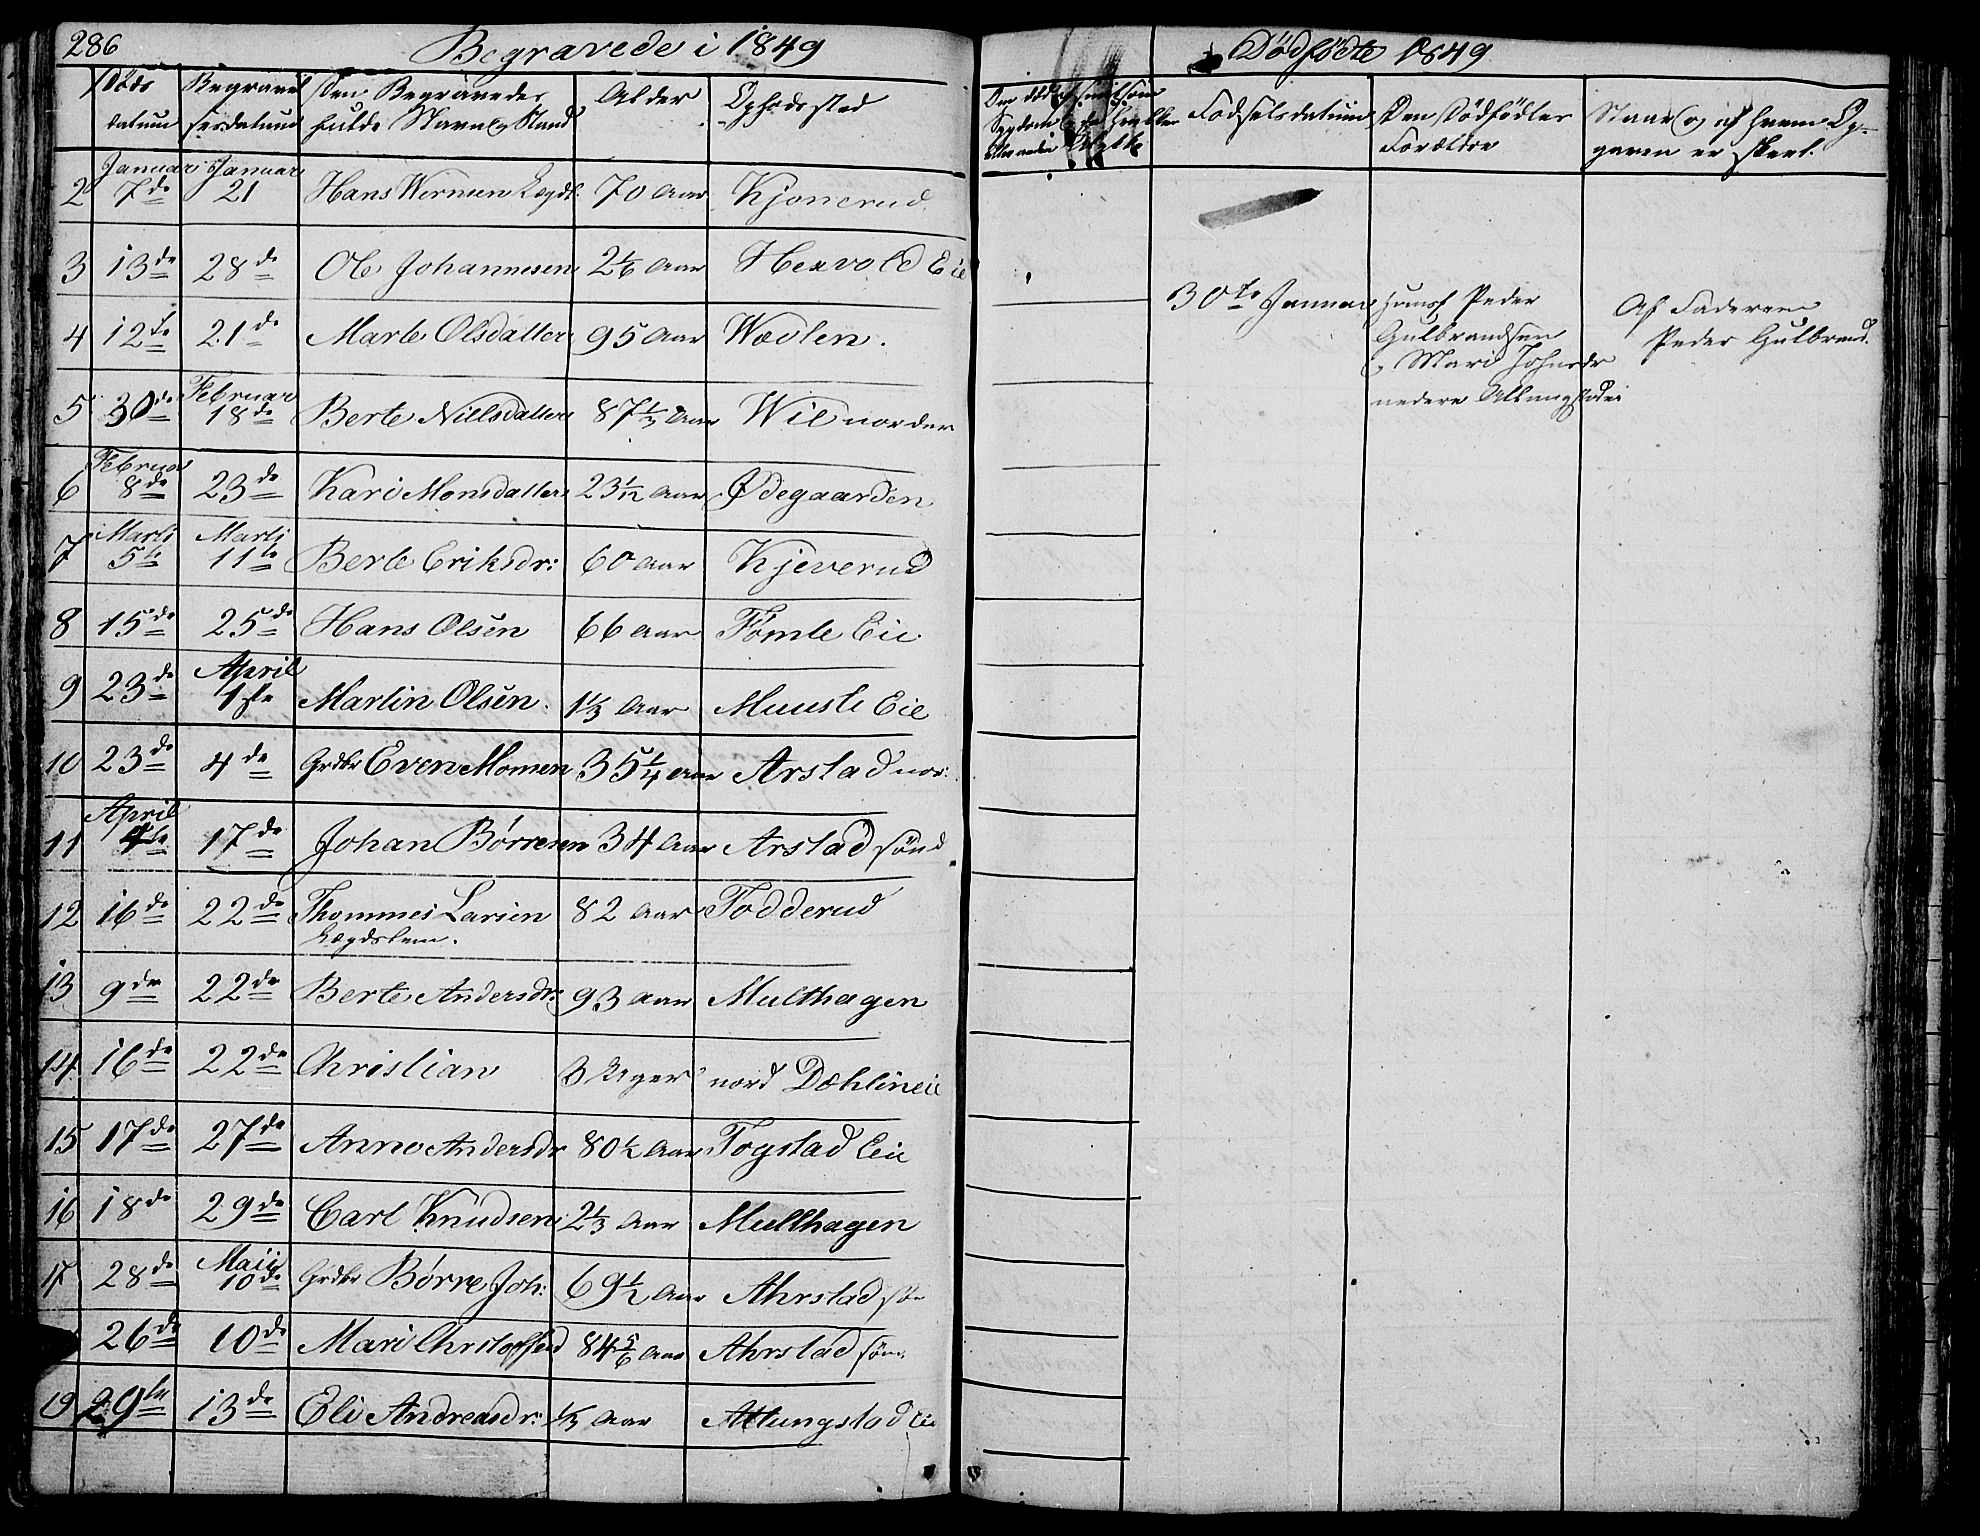 286 Begravede i 1849
Døds datum | Begravelsesdatum | Den Begravedes fulde Navn og Stand | Alder | Opholdssted
2 | Januar 7de | Januar 21 | Hans Wernsen Lægdl. | 70 Aar | Kjonerud
3 | 13de | 28de | Ole Johannesen | 2 1/6 Aar | Hexvold Eie
4 | 12te | 21de | Marte Olsdatter | 95 Aar | Wædlen.
5 | 30de | Februar 18de | Berte Nillsdatter | 87 1/3 Aar | Wil norder
6 | Februar 8de | 23de | Kari Monsdatter | 23 1/12 Aar | Ødegaarden
7 | Marts 5te | Marts 11te | Berte Eriksdr: | 60 Aar | Kjeverud
8 | 15de | 25de | Hans Olsen | 66 Aar | Tømte Eie
9 | 23de | April 1ste | Martin Olsen. | 1 1/3 Aar | Muuste Eie
10 | 23de | 4de | Grdbr Even Monsen | 35 1/4 Aar | Arstad nor:
11 | April 4te | 17de | Johan Børresen | 34 Aar | Arstad sønd.
12 | 16de | 22de | Thommes Larsen Lægdslem. | 82 Aar | Fodderud
13 | 9de | 22de | Berte Andersdr: | 93 Aar | Multhagen
14 | 16de | 22de | Christian | 3 Uger | nord Dæhlin eie
15 | 17de | 27de | Anne Andersdr | 80 1/2 Aar | Togstad Eie
16 | 18de | 29de | Carl Knudsen | 2 1/3 Aar | Multhagen
17 | 28de | Maii 10de | Grdbr Børre Joh: | 69 1/2 Aar | Ahrstad
26de | 10de | Mari Chrstoffersd | 84 5/6 Aar | Ahrstad søn:
19 | 29de | 13de | Eli Andreasdr: | 1/3 Aar | Allungstad Eie
Dødfødte 1849
Fødselsdatum | Den Dødfødtes Forældre | Naar og af hvem Opgaven er skeet.
30te Januar | Huusf Peder | Af Faderen
Gulbrandsen | Peder Gulbrand.
og Mari Johnsdr
nedere Allungstadei